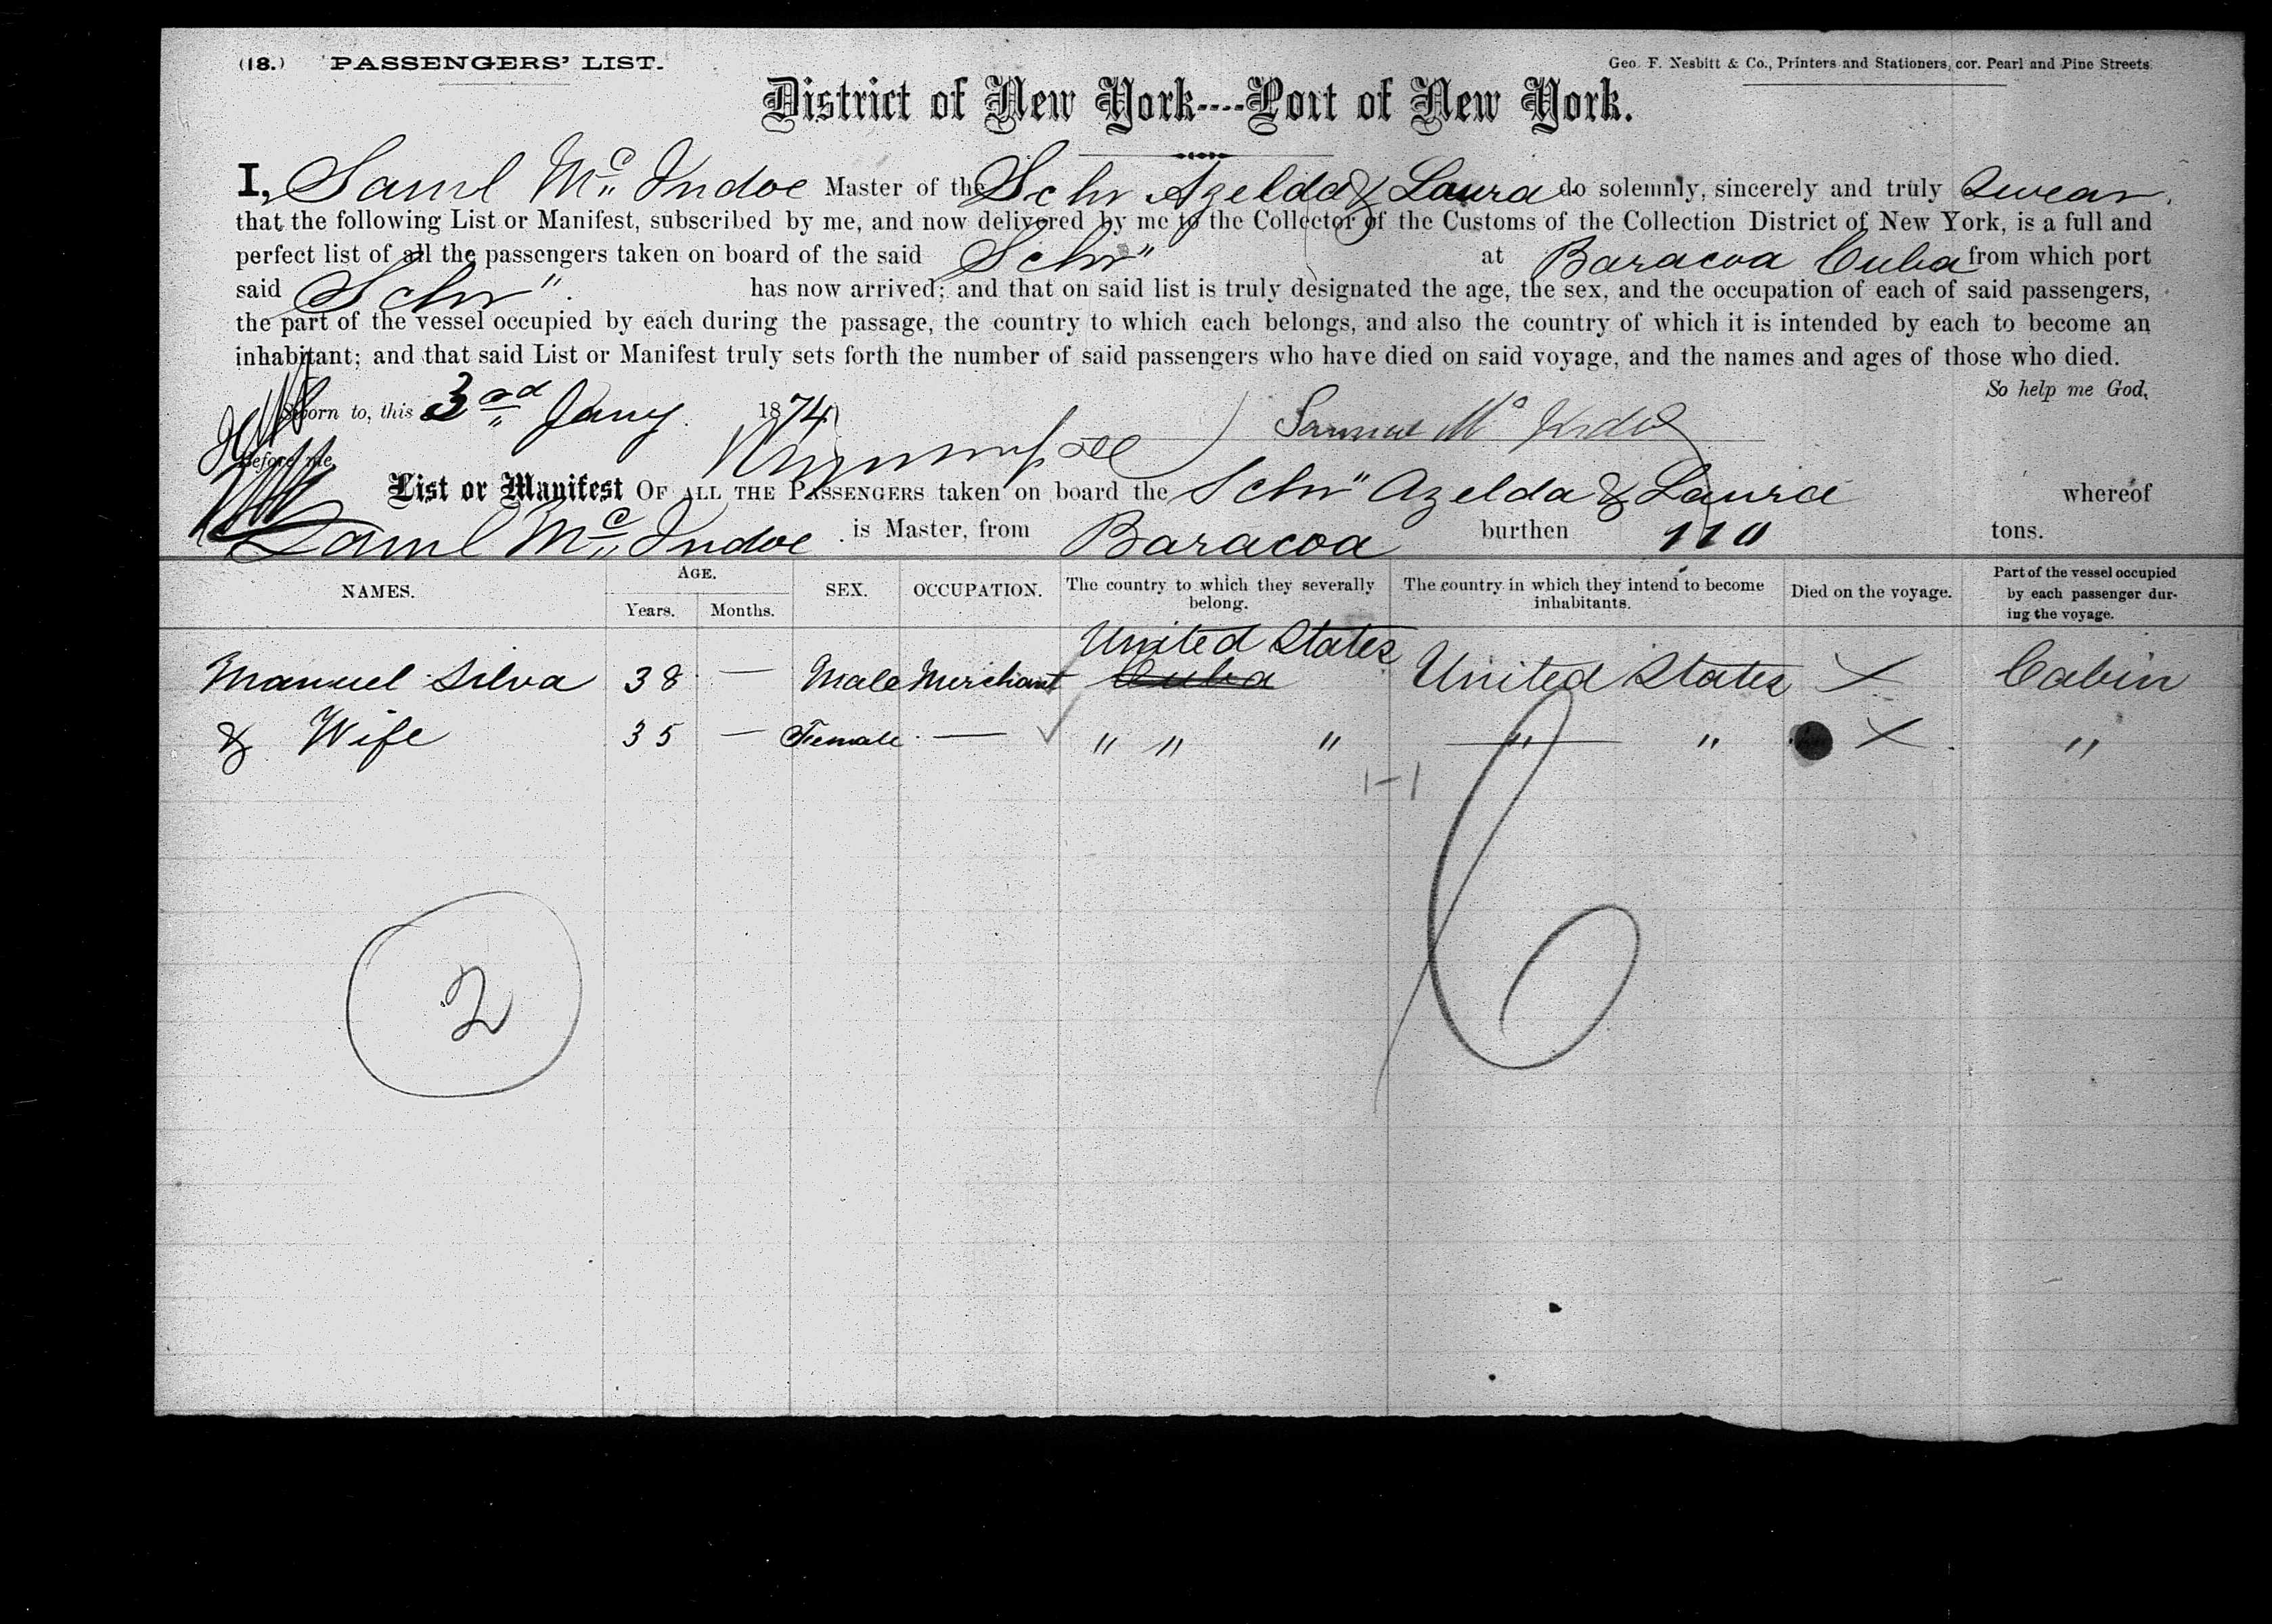 (18.) PASSENGERS' LIST.
Geo. F. Nesbitt & Co., Printers and Stationers, cor. Pearl and Pine Streets.
District of New York----Port of New York.
I, Saml Mc Indoe Master of the Schr Azelda & Laura do solemnly, sincerely and truly Swear
that the following List or Manifest, subscribed by me, and now delivered by me to the Collector of the Customs of the Collection District of New York, is a full and
perfect list of all the passengers taken on board of the said Schr" at Baracoa Cuba from which port
said Schr" has now arrived; and that on said list is truly designated the age, the sex, and the occupation of each of said passengers,
the part of the vessel occupied by each during the passage, the country to which each belongs, and also the country of which it is intended by each to become an
inhabitant; and that said List or Manifest truly sets forth the number of said passengers who have died on said voyage, and the names and ages of those who died.
So help me God,
Sworn to, this 3rd Jany 1874
Samuel Mc Indoe
Before me,
List or Manifest OF ALL THE PASSENGERS taken on board the Schr" Azelda & Laura whereof
Saml Mc Indoe is Master, from Baracoa burthen 110 tons.
NAMES. AGE. Years. Months. SEX. OCCUPATION. The country to which they severally belong. The country in which they intend to become inhabitants. Died on the voyage. Part of the vessel occupied by each passenger during the voyage.
United States
Manuel Silva 38 — Male Merchant Cuba United States X Cabin
& Wife 35 — Female — " " " " " X "
1-1
6
2